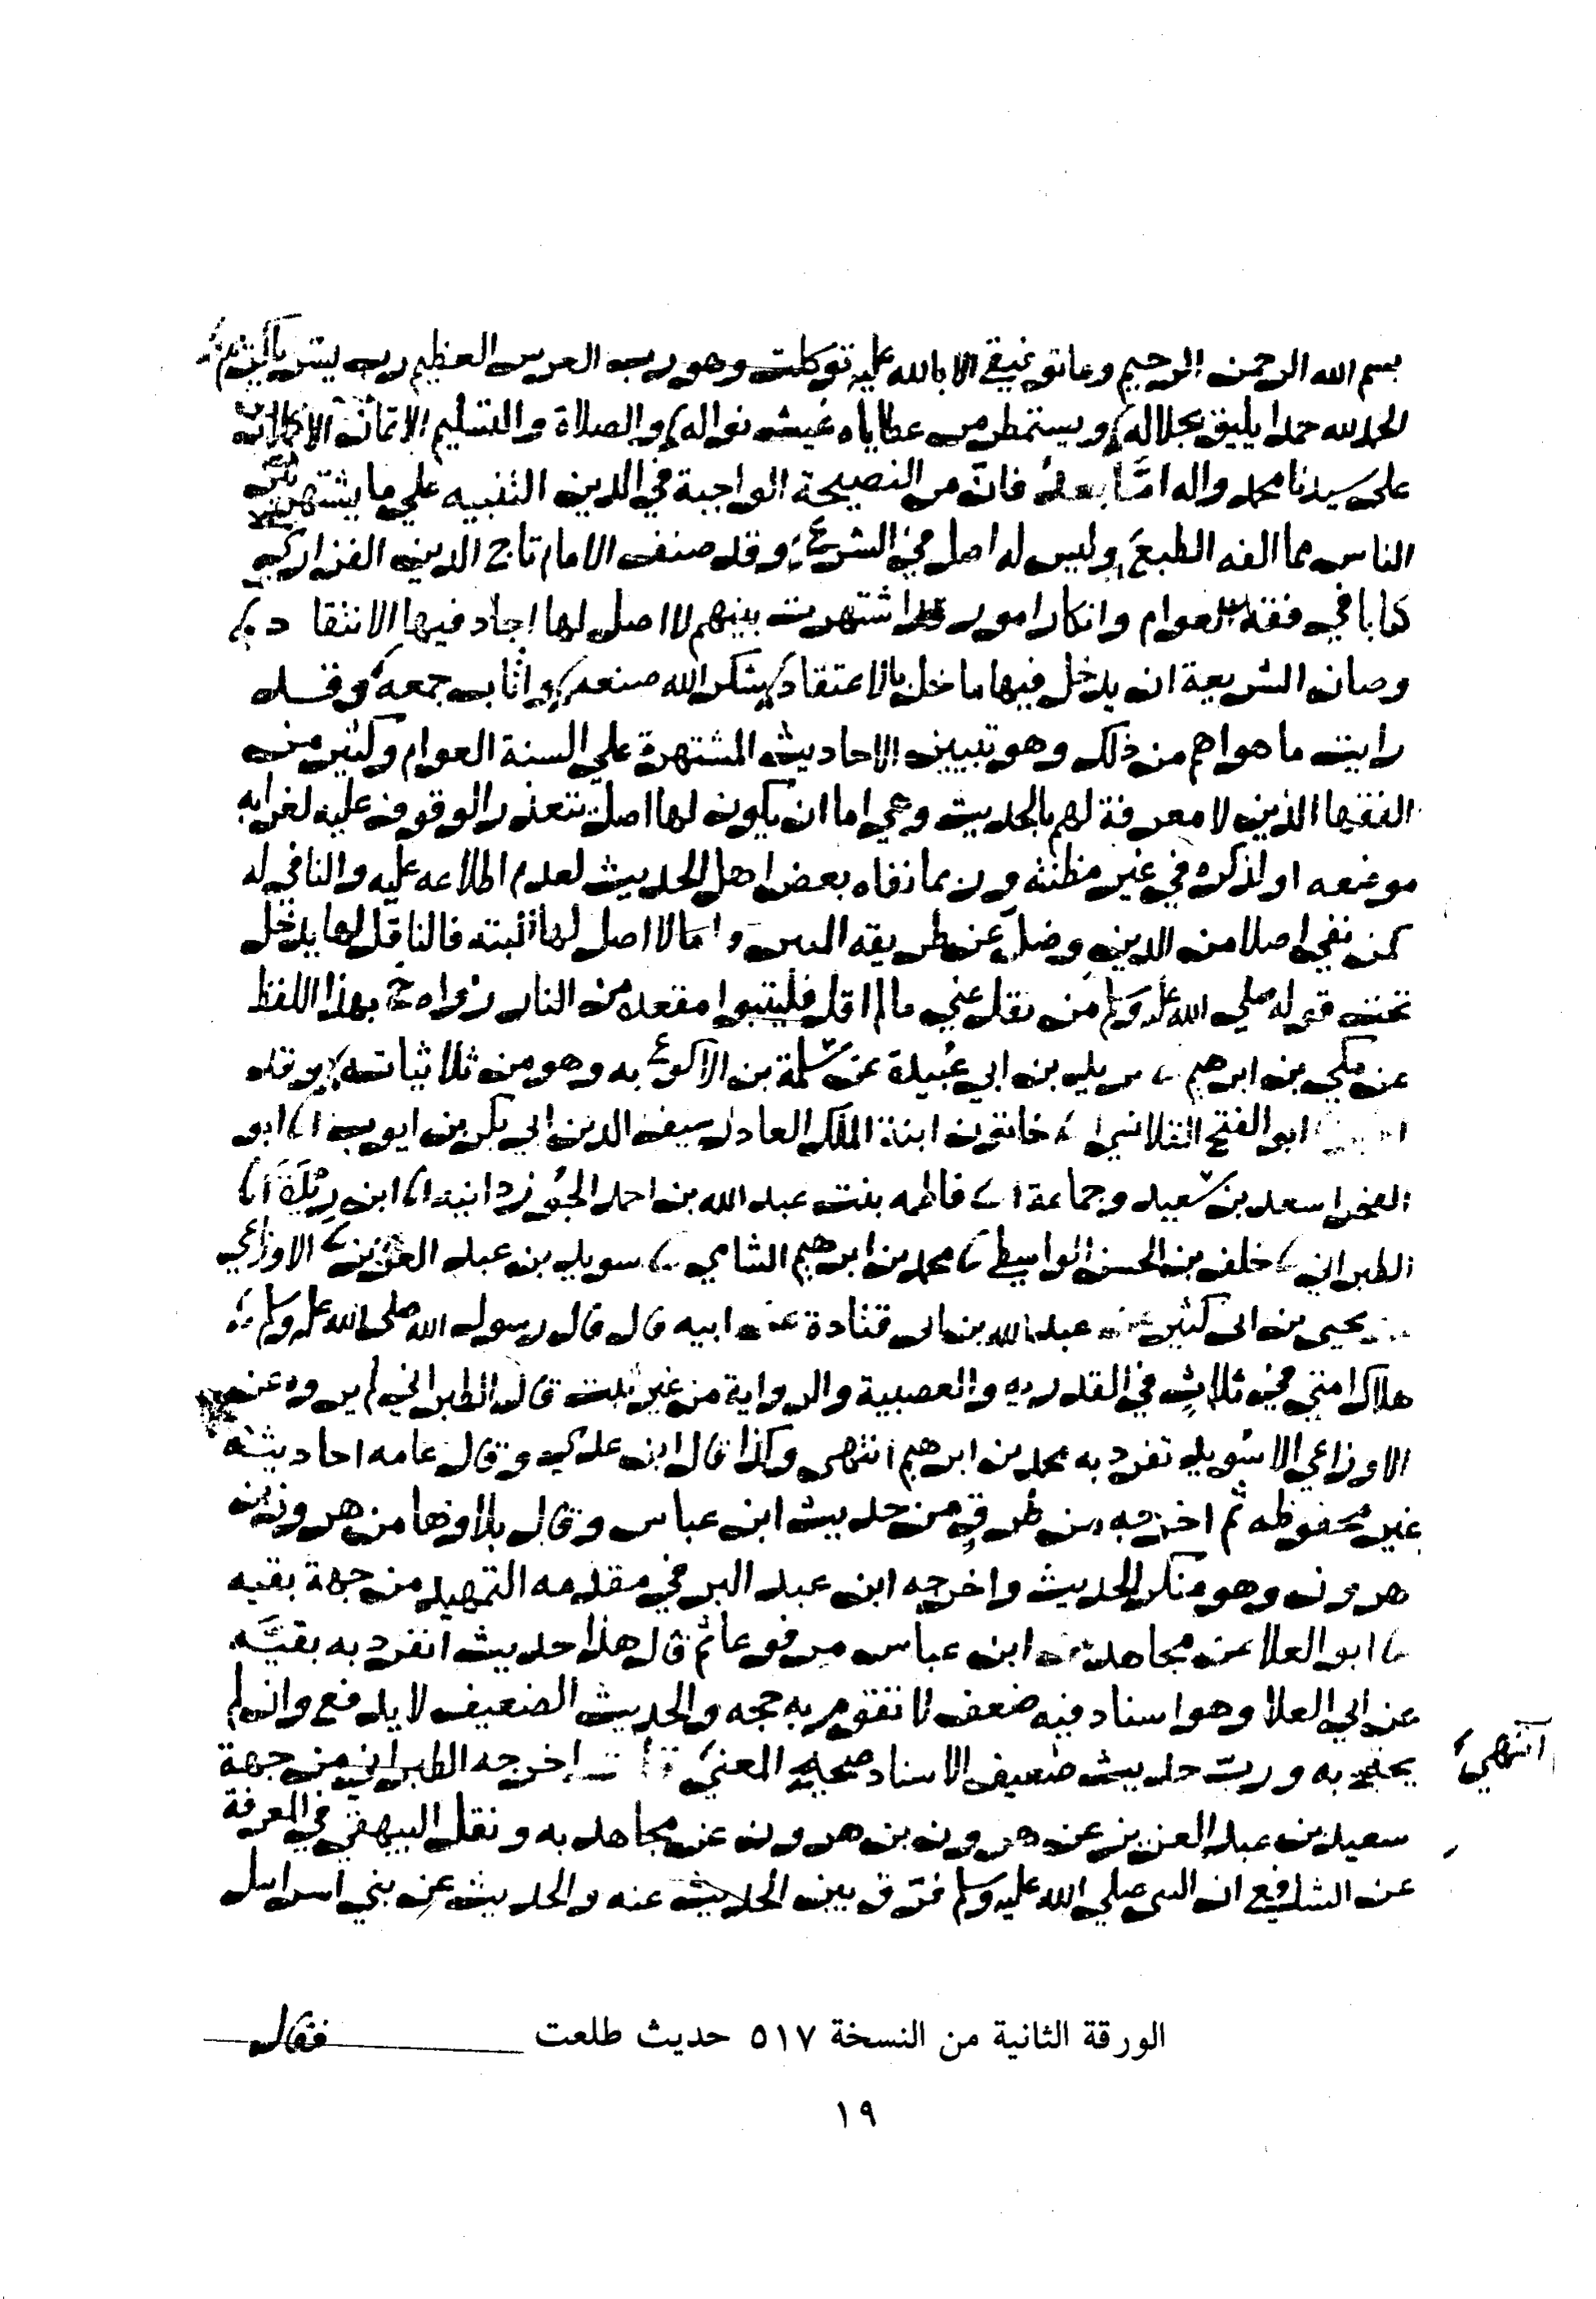 بسم الله الرحمن الرحيم وما توفيقي الا بالله عليه توكلت وهو رب العرش العظيم رب يسر يا كريم
الحمد لله حمدا يليق بجلاله ويستمطر من عطاياه غيث نواله والصلاة والتسليم الاتمان الاكملان
على سيدنا محمد واله اما بعد فان من النصيحة الواجبة في الدين التنبيه علي ما يشتهر بين
الناس مما الفه الطبع وليس له اصل في الشرع وقد صنف الامام تاج الدين الفزاري
كتابا في فقه العوام وانكار امور قد اشتهرت بينهم لا اصل لها اجاد فيها الانتقاد
وصان الشريعة ان يدخل فيها ما خل بالاعتقاد شكر الله صنعه واثاب جمعه وقد
رايت ما هو اهم من ذلك وهو تبيين الاحاديث المشتهرة علي السنة العوام وكثير من
الفقها الذين لا معرفة لهم بالحديث وهي اما ان يكون لها اصل يتعذر الوقوف عليه لغرابه
موضعه او لذكره في غير مظنته وربما نفاه بعض اهل الحديث لعدم اطلاعه عليه والنافي له
كمن نفي اصلا من الدين وضل عن طريقه المس واما لا اصل لها البته فالناقل لها يدخل
تحت قوله صلي الله عليه وسلم من نقل عني ما لم اقل فليتبوا مقعده من النار رواه خ بهذا اللفظ
عن مكي بن ابرهيم ثنا يزيد بن ابي عبيدة عن سلمة بن الاكوع به وهو من ثلاثياته وقد
ابو الفتح القلانسي انا خاتون ابنة الملك العادل سيف الدين ابي بكر بن ايوب انا ابو
الفخر اسعد بن سعيد وجماعة انا فاطمه بنت عبد الله بن احمد الجوزدانيه انا ابن ريذة انا
الطبراني ثنا خلف بن الحسن الواسطي ثنا محمد بن ابرهيم الشامي ثنا سويد بن عبد العزيز ثنا الاوزاعي
عن يحيى بن ابى كثير عن عبد الله بن ابى قتادة عن ابيه قال قال رسول الله صلى الله عليه وسلم
هلاك امتي في ثلاث في القدريه والعصبية والرواية من غير ثبت قال الطبراني لم يروه عن
الاوزاعي الا سويد تفرد به محمد بن ابرهيم انتهى وكذا قال ابن عدي وقال عامه احاديثه
غير محفوظه ثم اخرجه من طرق من حديث ابن عباس وقال بلاوها من هرون بن
هرون وهو منكر الحديث واخرجه ابن عبد البر في مقدمه التمهيد من جهة بقيه
ثنا ابو العلا عن مجاهد عن ابن عباس مرفوعا ثم قال هذا حديث انفرد به بقيه
عن ابي العلا وهو اسناد فيه ضعف لا تقوم به حجه والحديث الضعيف لا يدفع وان لم
يحتج به ورب حديث ضعيف الاسناد صحيح المعني قلت اخرجه الطبراني من جهة
انتهي
سعيد بن عبد العزيز عن هرون بن هرون عن مجاهد به ونقل البيهقي في المعرفة
عن الشافعي ان النبى صلي الله عليه وسلم فرق بين الحديث عنه والحديث عن بني اسرايل
فقال
الورقة الثانية من النسخة ٥١٧ حديث طلعت
١٩